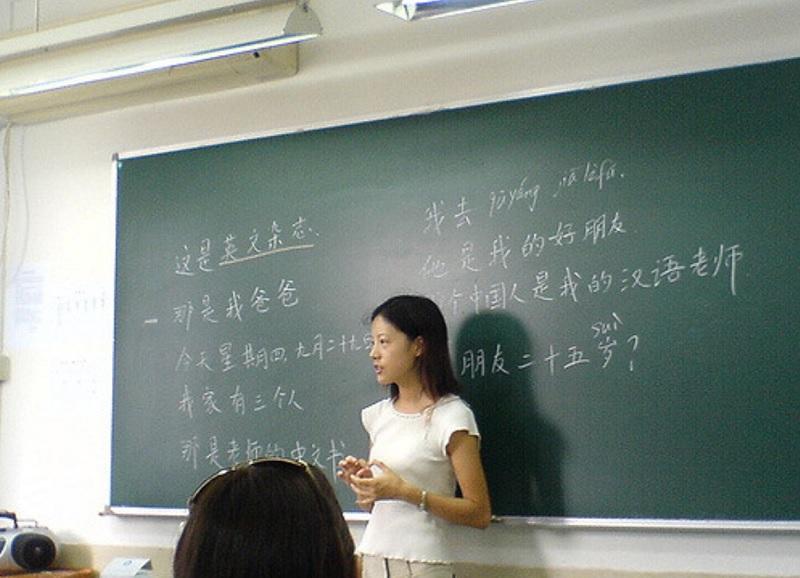 这是英文杂志.
那是我爸爸
今天星期四.九月二十九
我家有三个人
那是老师的中文书
我去
他是我的好朋友
个中国人是我的汉语老师
suì
朋友二十五岁?